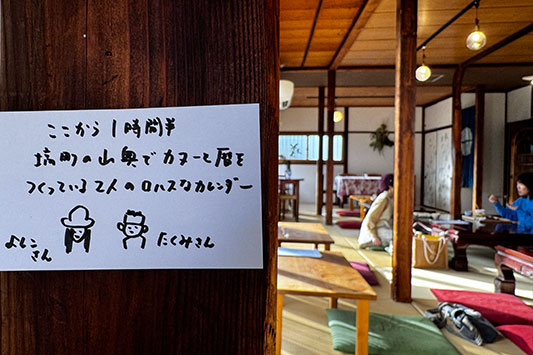 ここから1時間半
塙町の山奥でカヌーと暦を
つくっている2人のロハスなカレンダー
よしこさん
たくみさん